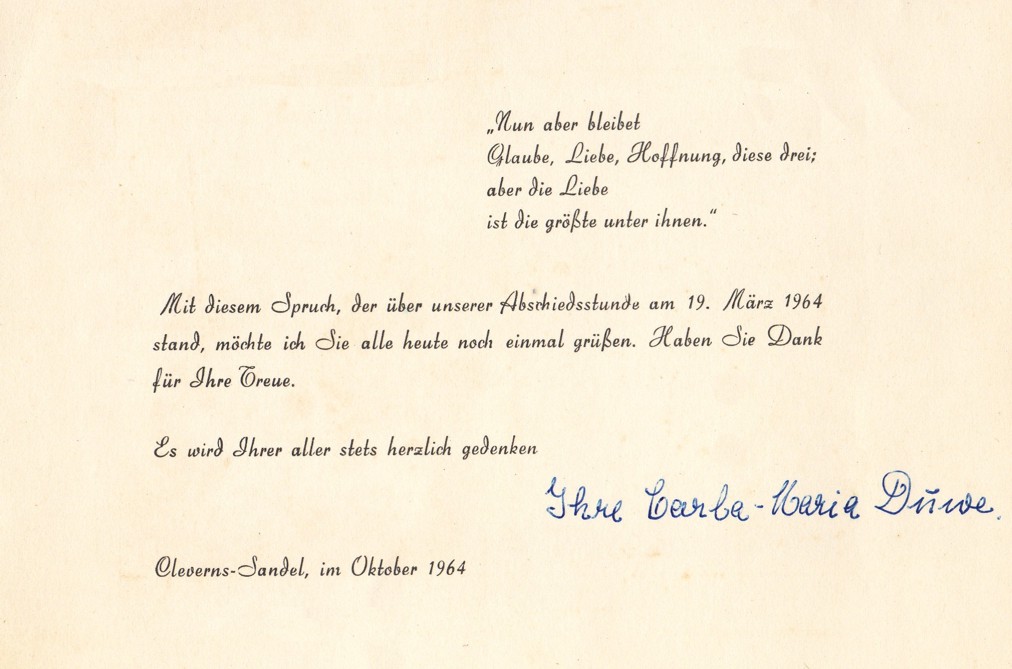 „Nun aber bleibet
Glaube, Liebe, Hoffnung, diese drei;
aber die Liebe
ist die größte unter ihnen.“
Mit diesem Spruch, der über unserer Abschiedsstunde am 19. März 1964
stand, möchte ich Sie alle heute noch einmal grüßen. Haben Sie Dank
für Ihre Treue.
Es wird Ihrer aller stets herzlich gedenken
Ihre Carba-Maria Duwe.
Cleverns-Sandel, im Oktober 1964